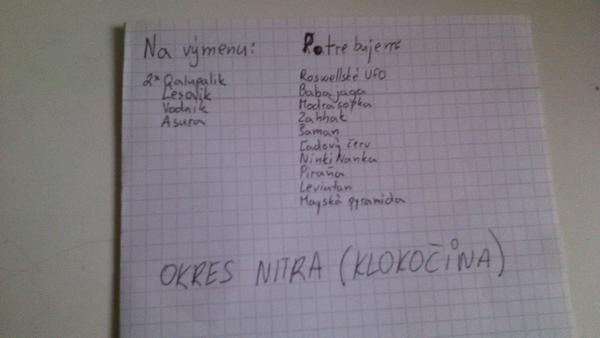 Na výmenu:
2x Qalupalik
Lesovik
Vodník
Asura
Potrebujem:
Roswellské UFO
Baba jaga
Modrá sopka
Zahhak
Šaman
Ľadový červ
Ninki Nanka
Piraňa
Leviatan
Mayská pyramída
OKRES NITRA (KLOKOČINA)